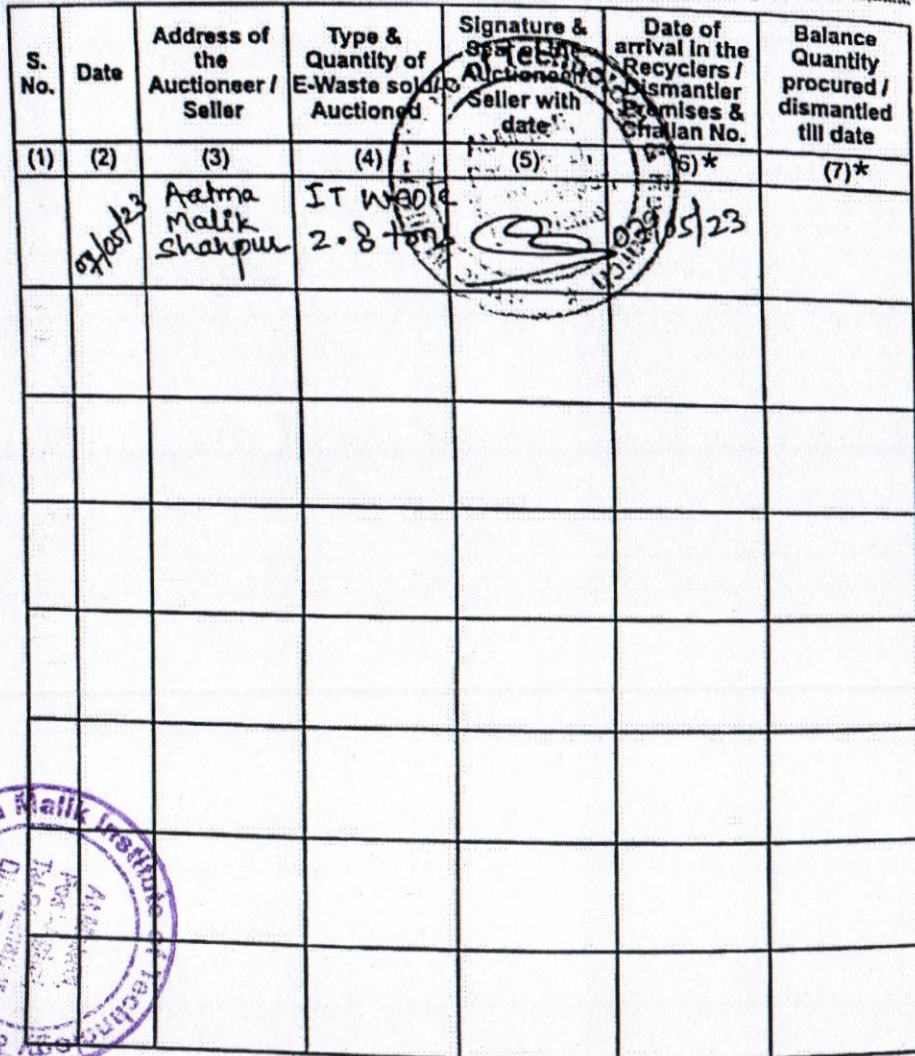 S. No.
Date
Address of the Auctioneer / Seller
Type & Quantity of E-Waste sold / Auctioned
Signature & Seal of the Auctioneer / Seller with date
Date of arrival in the Recyclers / Dismantler Premises & Challan No.
Balance Quantity procured / dismantled till date
(1) (2) (3) (4) (5) (6)* (7)*
Aatma
Malik
Shahpur
IT Waste
2.8 tons
/05/23
/05/23
Malik Institute of Technology